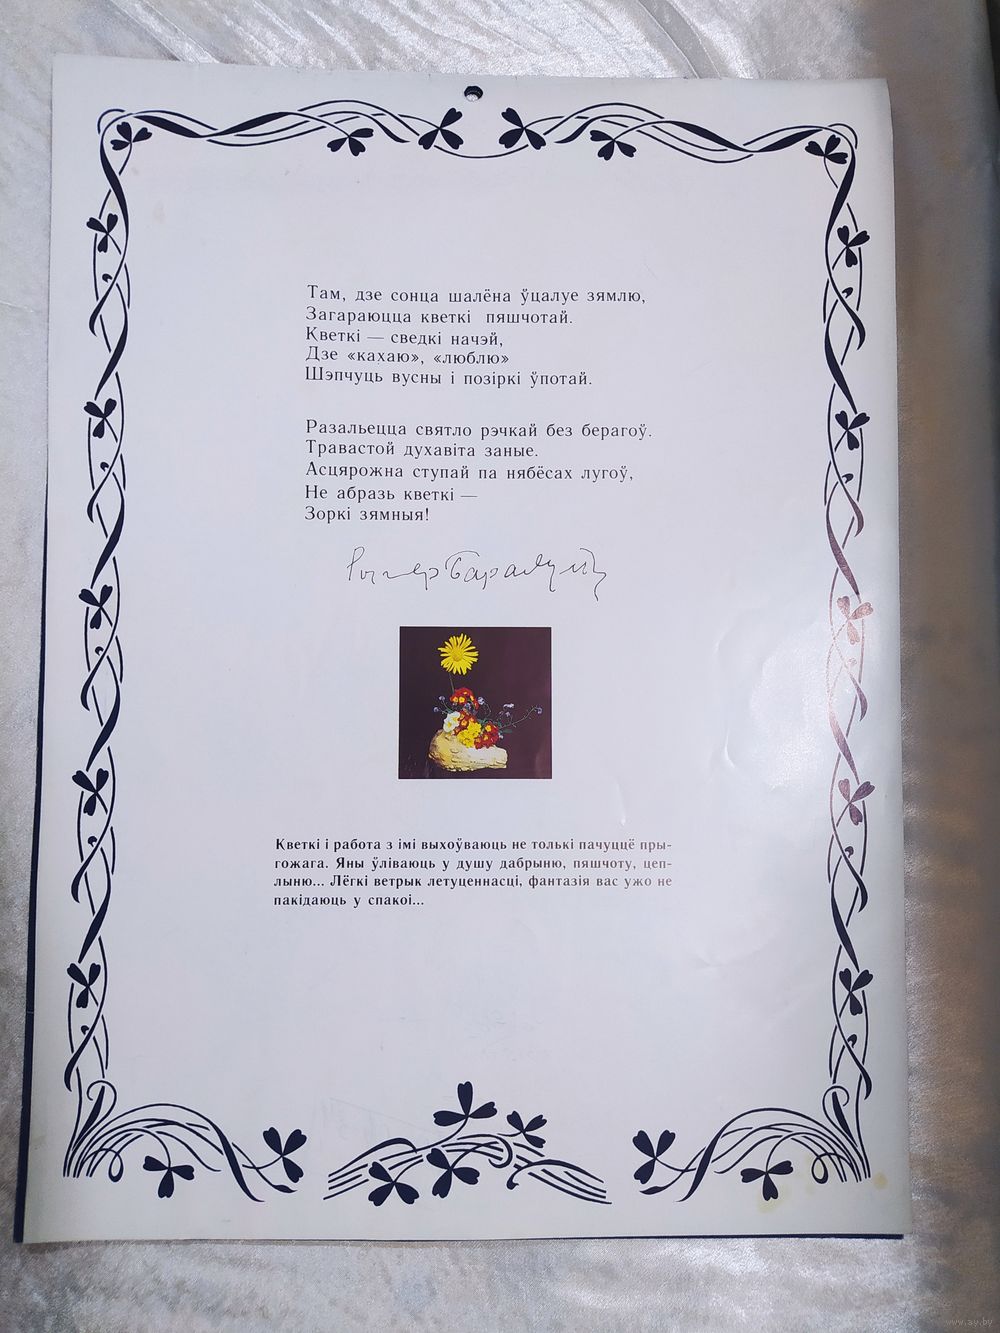 Там, дзе сонца шалёна ўцалуе зямлю,
Загараюцца кветкі пяшчотай.
Кветкі — сведкі начэй,
Дзе «кахаю», «люблю»
Шэпчуць вусны і позіркі ўпотай.
Разальецца святло рэчкай без берагоў.
Травастой духавіта заные.
Асцярожна ступай па нябёсах лугоў,
Не абразь кветкі —
Зоркі зямныя!
Рыгор Барадулін
Кветкі і работа з імі выхоўваюць не толькі пачуццё пры-
гожага. Яны ўліваюць у душу дабрыню, пяшчоту, цеп-
лыню... Лёгкі ветрык летуценнасці, фантазія вас ужо не
пакідаюць у спакоі...
www.ay.by